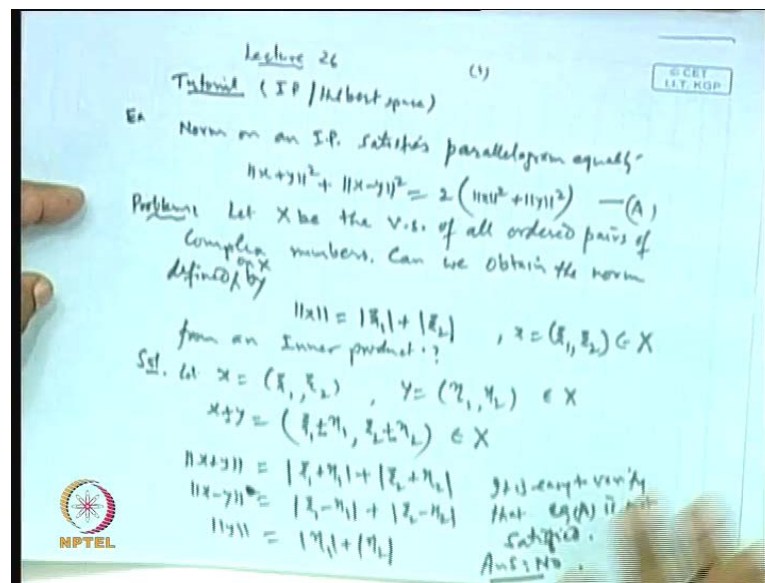 Lecture 26 (1)
© CET
I.I.T. KGP
Tutorial (IP/Hilbert space)
Ex Norm on an I.P. satisfies parallelogram equality
||x+y||² + ||x-y||² = 2(||x||² + ||y||²) —(A)
Problem: Let X be the V.S. of all ordered pairs of
Complex numbers. Can we obtain the norm
defined on X by
||x|| = |ξ₁| + |ξ₂| , x = (ξ₁, ξ₂) ∈ X
from an Inner product ?
Sol. Let x = (ξ₁, ξ₂) , y = (η₁, η₂) ∈ X
x±y = (ξ₁±η₁, ξ₂±η₂) ∈ X
||x+y|| = |ξ₁+η₁| + |ξ₂+η₂|
||x-y|| = |ξ₁-η₁| + |ξ₂-η₂|
||y|| = |η₁| + |η₂|
It is easy to verify
that eq(A) is not
satisfied.
Ans: No.
NPTEL